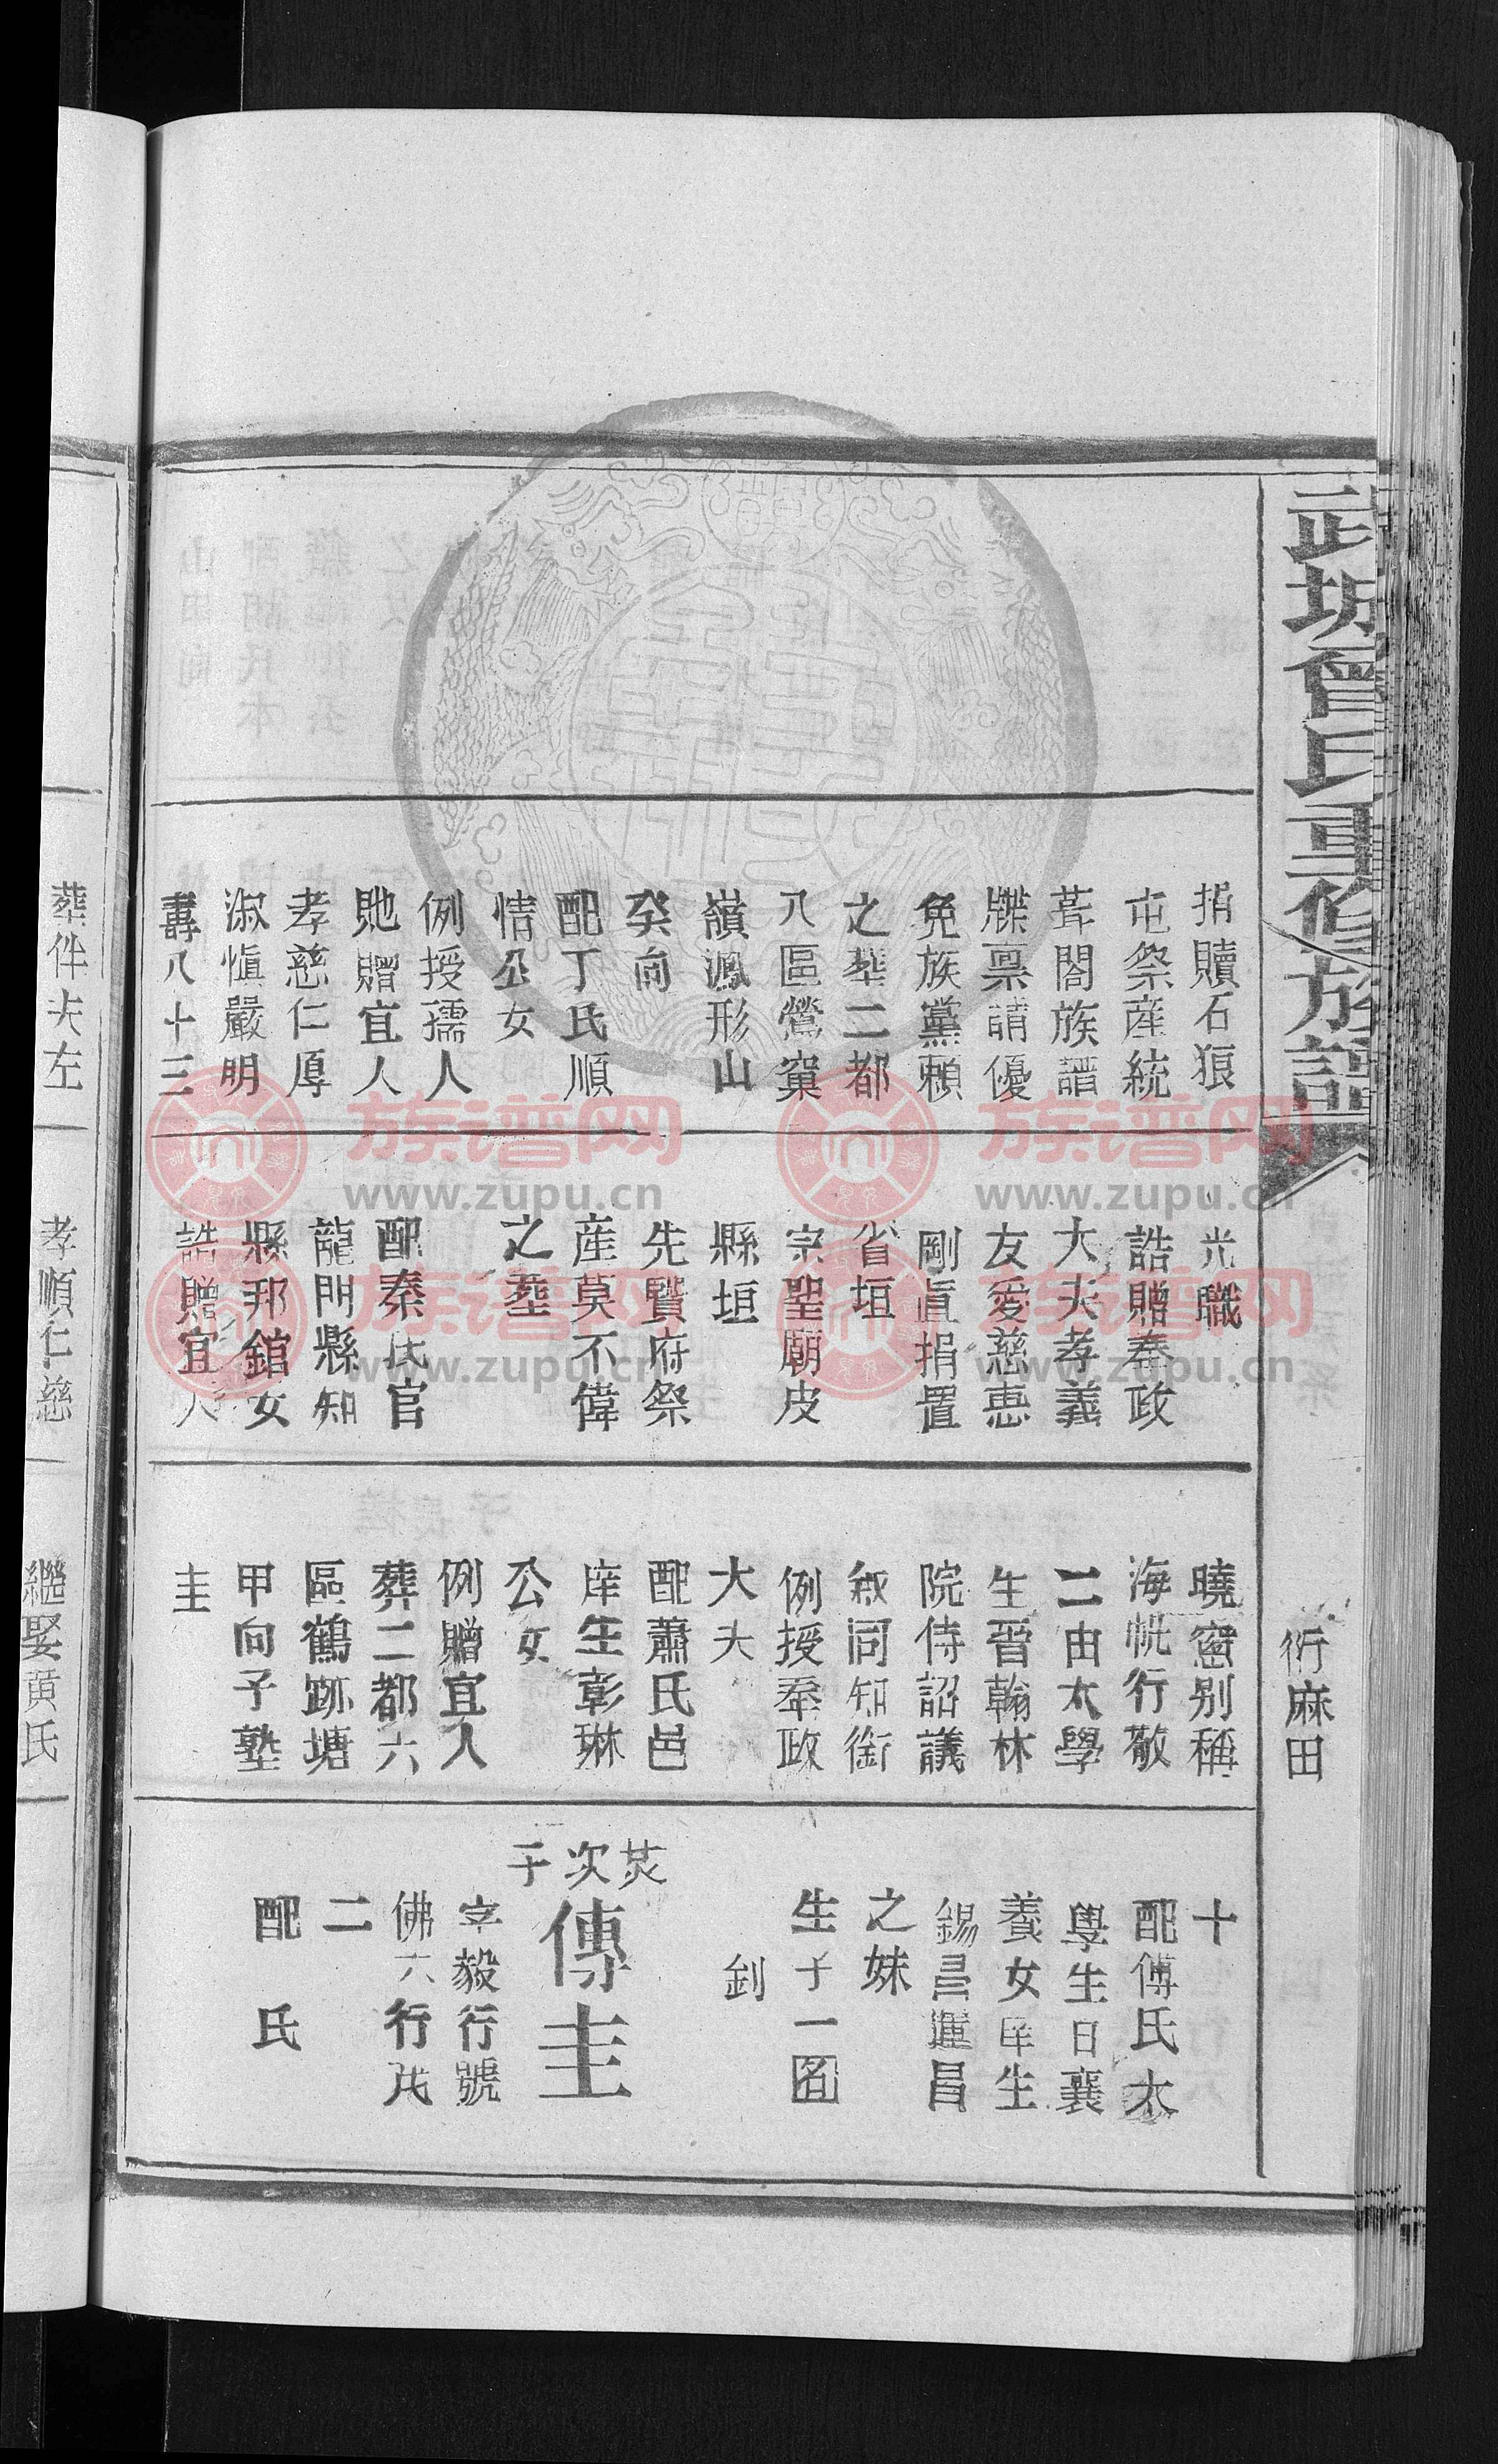 武城曾氏重修族譜
衍麻田
捐贖石狼
屯祭産統
葺閤族譜
牒禀請優
免族黨賴
之葬二都
八區鶯窠
嶺鳳形山
癸向
配丁氏順
情公女
例授孺人
貤贈宜人
孝慈仁厚
淑慎嚴明
壽八十三
光職
誥贈奉政
大夫孝義
友愛慈惠
剛直捐置
省垣
宗聖廟皮
縣垣
先賢府祭
産莫不偉
之葬
配秦氏官
龍門縣知
縣邦錧女
誥贈宜人
曉窓别稱
海帆行敬
二由太學
生晉翰林
院侍詔議
叙同知銜
例授奉政
大夫
配蕭氏邑
庠生彰琳
公女
例贈宜人
葬二都六
區鶴跡塘
甲向子塾
圭
十
配傅氏太
學生日襄
養女庠生
錫昌運昌
之妹
生子一
釗
炗次子
傳圭
字毅行號
佛六行茂
二
配 氏
葬伴夫左
孝順仁慈
繼娶黄氏
族谱网
www.zupu.cn
族谱网
www.zupu.cn
族谱网
www.zupu.cn
族谱网
www.zupu.cn